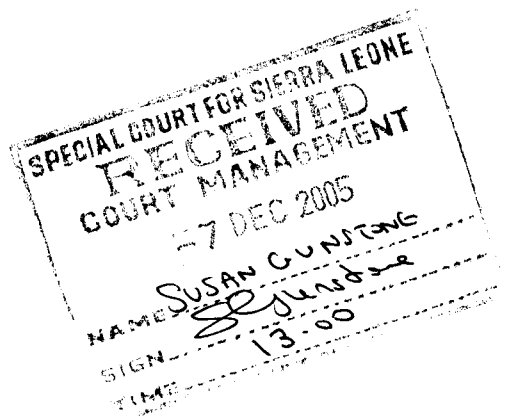 SPECIAL COURT FOR SIERRA LEONE
RECEIVED
COURT MANAGEMENT
-7 DEC 2005
NAME SUSAN GUNSTONE
SIGN SGunstone
TIME 13.00